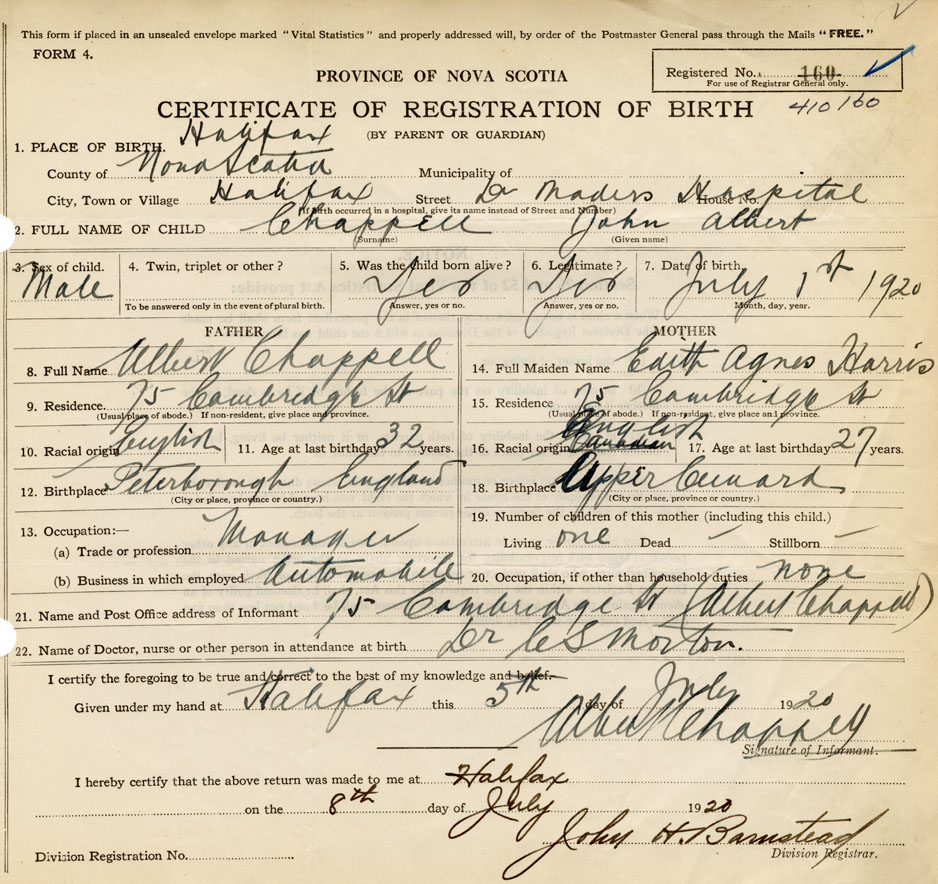 This form if placed in an unsealed envelope marked "Vital Statistics" and properly addressed will, by order of the Postmaster General pass through the Mails "FREE."
FORM 4.
PROVINCE OF NOVA SCOTIA
Registered No. 160
For use of Registrar General only.
CERTIFICATE OF REGISTRATION OF BIRTH
410160
(BY PARENT OR GUARDIAN)
Halifax
1. PLACE OF BIRTH.
County of Nova Scotia Municipality of
City, Town or Village Halifax Street Dr Maders Hospital House No.
(If birth occurred in a hospital, give its name instead of Street and Number)
2. FULL NAME OF CHILD Chappell John Albert
(Surname) (Given name)
3. Sex of child. 4. Twin, triplet or other? 5. Was the child born alive? 6. Legitimate? 7. Date of birth
Male Yes Yes July 1st 1920
To be answered only in the event of plural birth. Answer, yes or no. Answer, yes or no. Month, day, year.
FATHER
8. Full Name Albert Chappell
9. Residence. 75 Cambridge St
(Usual place of abode.) If non-resident, give place and province.
10. Racial origin English 11. Age at last birthday 32 years.
12. Birthplace Peterborough England
(City or place, province or country.)
13. Occupation:—
(a) Trade or profession Manager
(b) Business in which employed Automobile
MOTHER
14. Full Maiden Name Edith Agnes Harris
15. Residence 75 Cambridge St
(Usual place of abode.) If non-resident, give place and province.
English
16. Racial origin Canadian 17. Age at last birthday 27 years.
18. Birthplace Upper Cunard
(City or place, province or country.)
19. Number of children of this mother (including this child.)
Living one Dead – Stillborn –
20. Occupation, if other than household duties none
21. Name and Post Office address of Informant 75 Cambridge St (Albert Chappell)
22. Name of Doctor, nurse or other person in attendance at birth Dr C S Morton.
I certify the foregoing to be true and correct to the best of my knowledge and belief.
Given under my hand at Halifax this 5th day of July 1920
Albert Chappell
Signature of Informant.
I hereby certify that the above return was made to me at Halifax
on the 8th day of July 1920
John H. Barnstead
Division Registration No. Division Registrar.